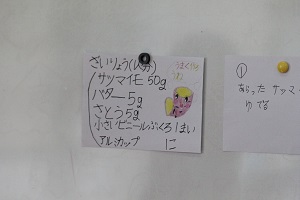 ざいりょう(1人分)
サツマイモ 50g
バター 5g
さとう 5g
小さいビニールぶくろ1まい
アルミカップ
①
あらった サツマ
ゆでる